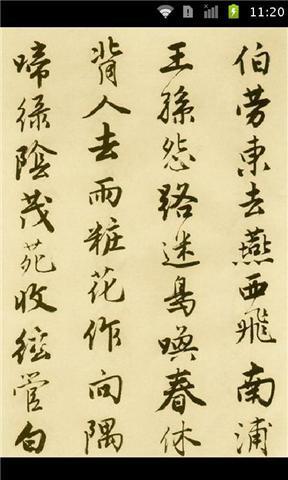 11:20
伯劳東去燕西飛南浦
王孫怨路迷鳥喚春休
背人去雨粧花作向隅
啼綠陰茂苑收絃管白